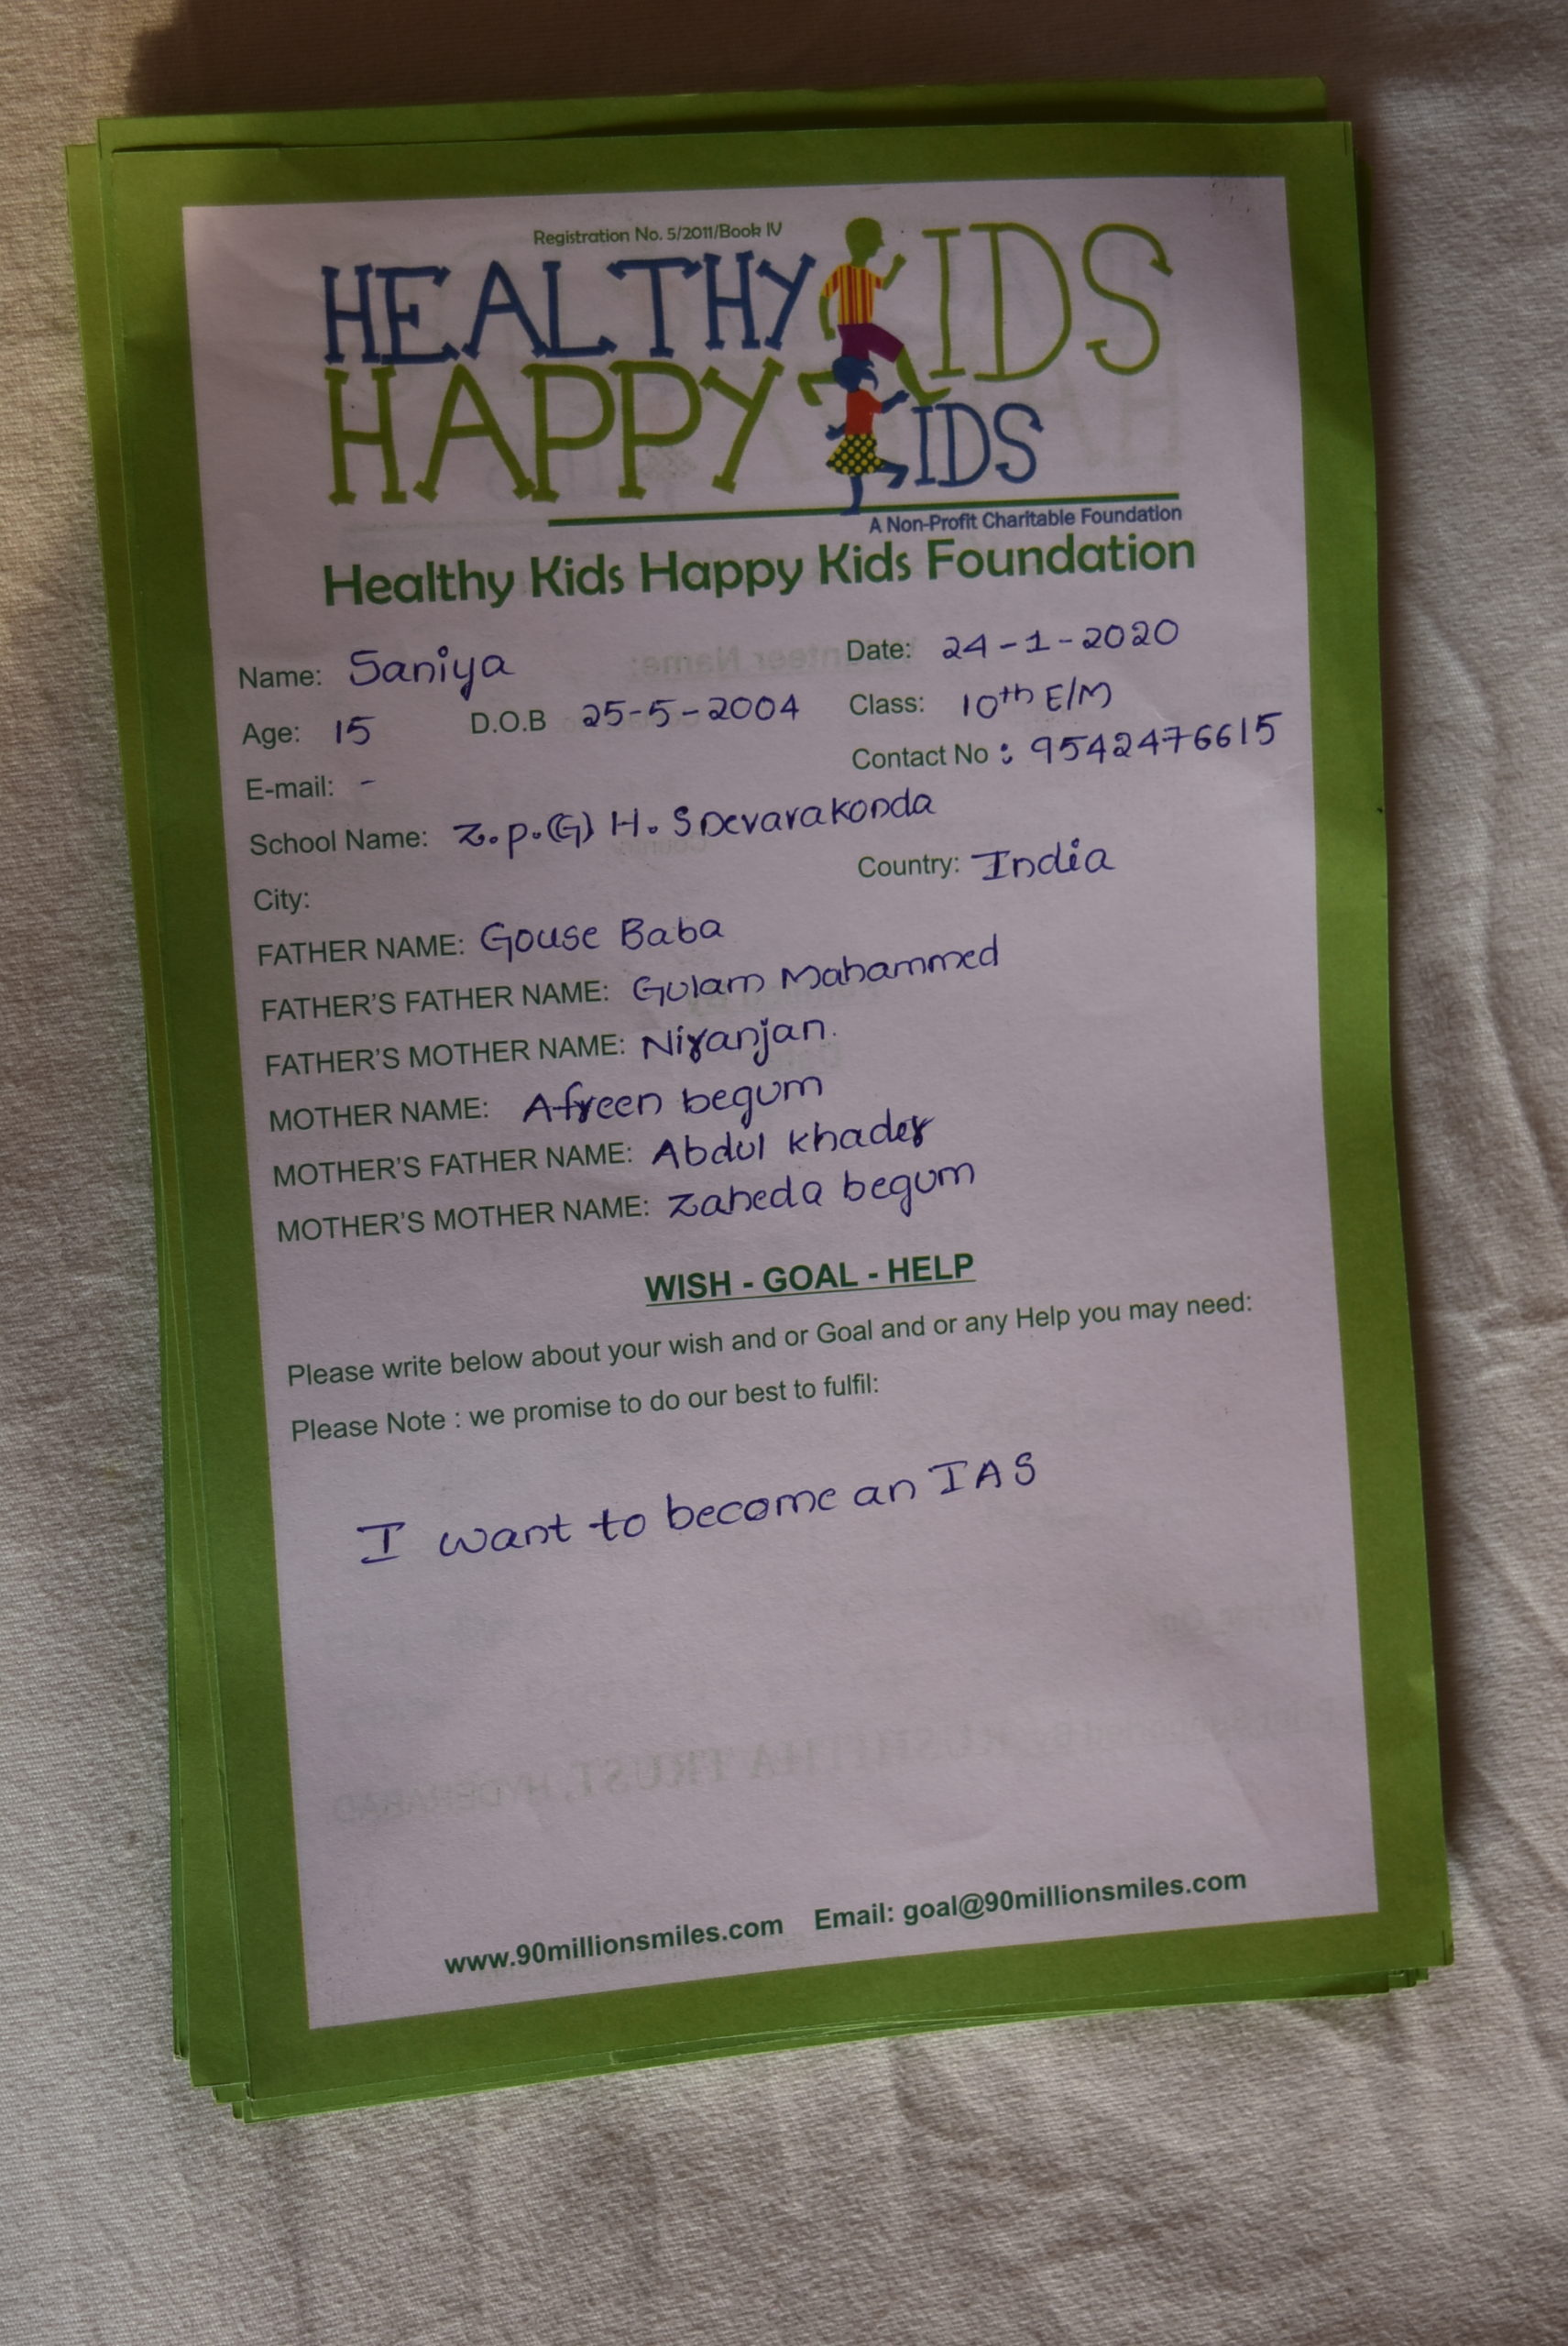 Registration No. 5/2011/Book IV
HEALTHY KIDS
HAPPY KIDS
A Non-Profit Charitable Foundation
Healthy Kids Happy Kids Foundation
Name: Saniya Date: 24-1-2020
Age: 15 D.O.B 25-5-2004 Class: 10th E/M
E-mail: - Contact No : 9542476615
School Name: Z.p.(G) H.S Devarakonda
City: Country: India
FATHER NAME: Gouse Baba
FATHER'S FATHER NAME: Gulam Mahammed
FATHER'S MOTHER NAME: Niranjan.
MOTHER NAME: Afreen begum
MOTHER'S FATHER NAME: Abdul khader
MOTHER'S MOTHER NAME: Zaheda begum
WISH - GOAL - HELP
Please write below about your wish and or Goal and or any Help you may need:
Please Note : we promise to do our best to fulfil:
I want to become an IAS
www.90millionsmiles.com Email: goal@90millionsmiles.com